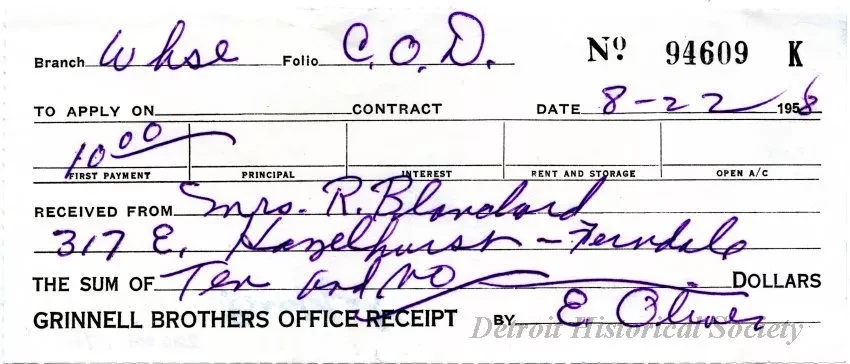 Branch Whse Folio C.O.D. Nº 94609 K
TO APPLY ON CONTRACT DATE 8-22 1958
10 00
FIRST PAYMENT PRINCIPAL INTEREST RENT AND STORAGE OPEN A/C
RECEIVED FROM Mrs. R. Blanchard
317 E. Hazelhurst - Ferndale
THE SUM OF Ten and no DOLLARS
GRINNELL BROTHERS OFFICE RECEIPT BY E. Oliver
Detroit Historical Society